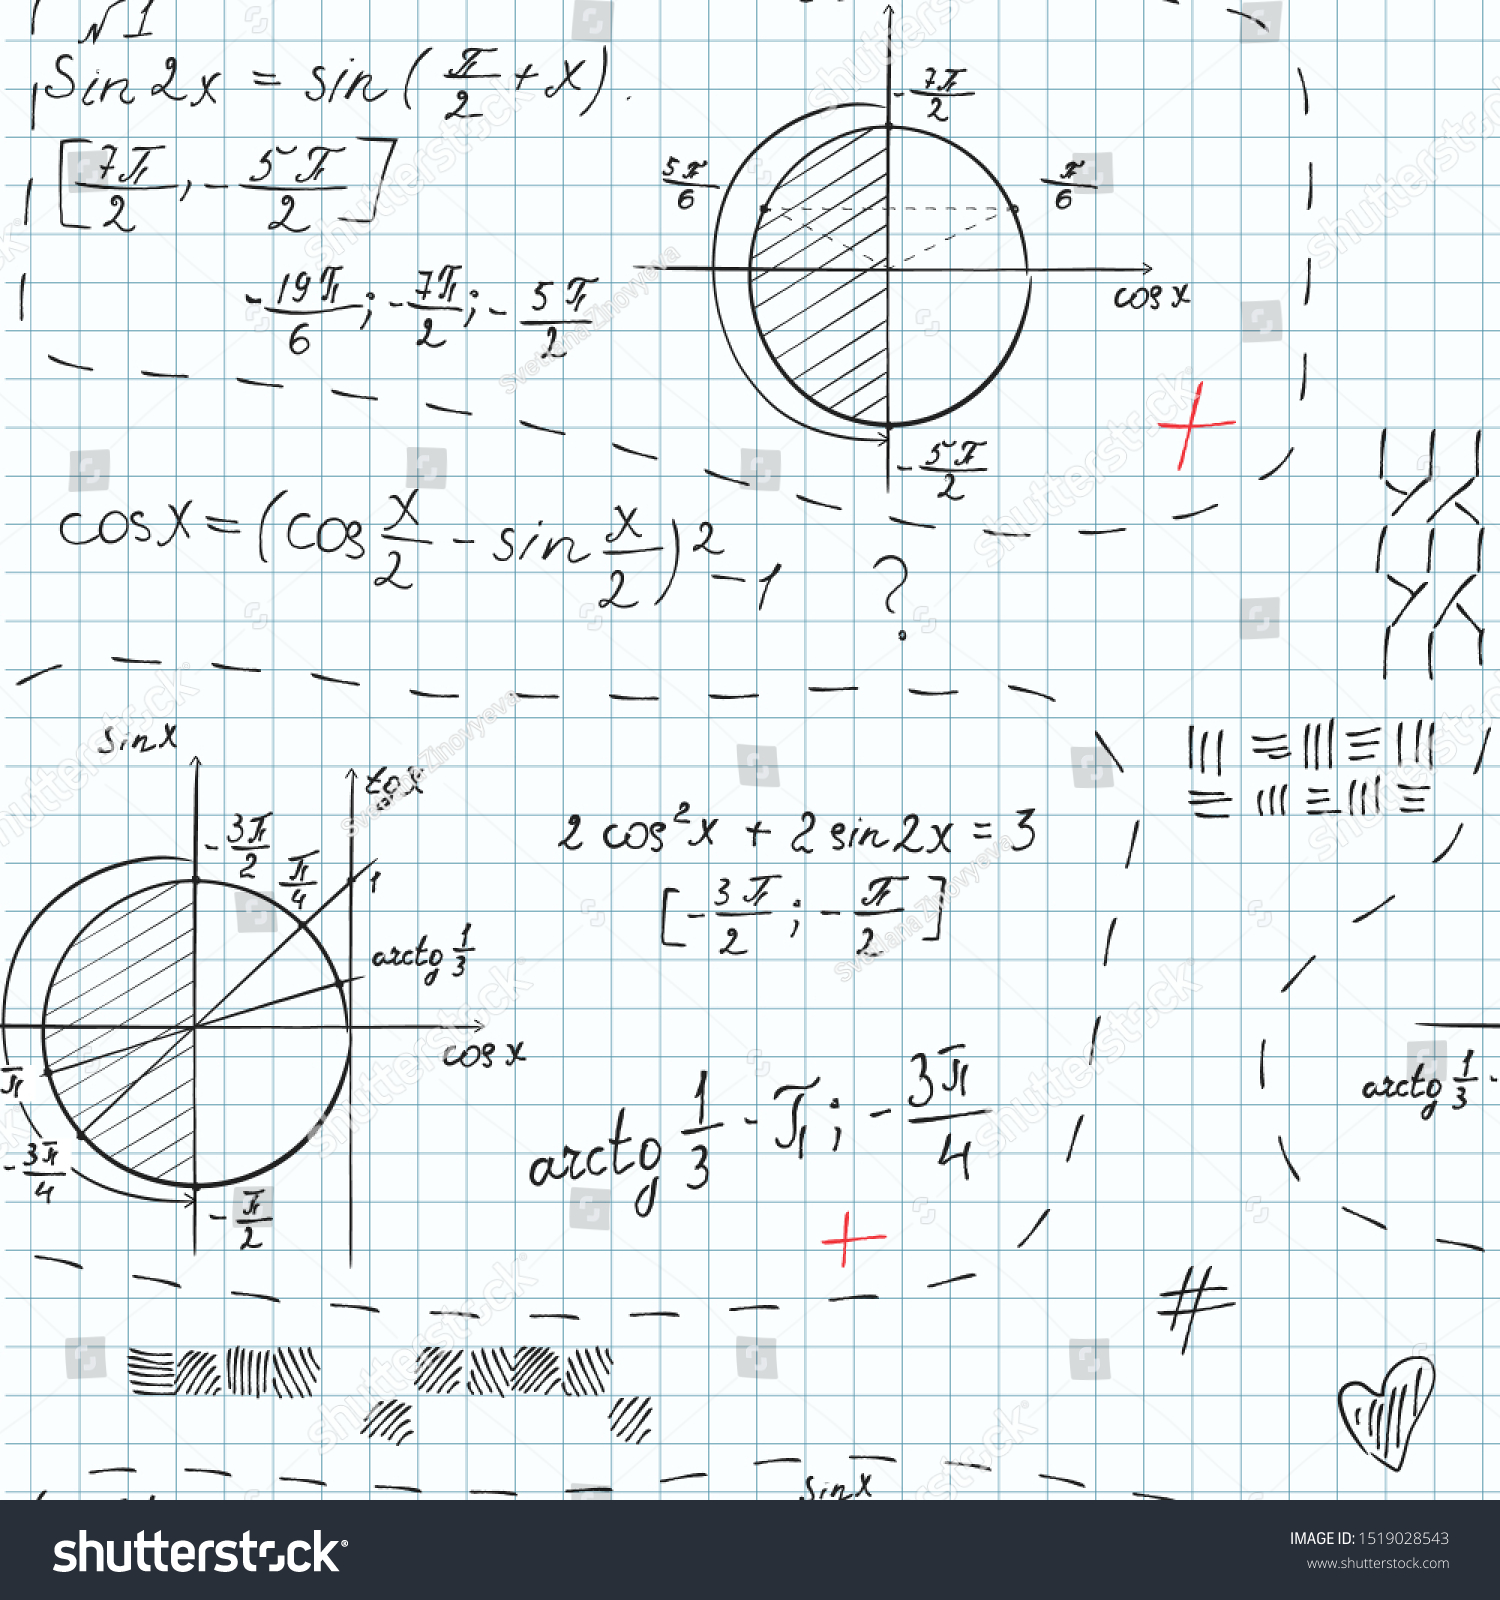 №1
Sin 2x = sin ( π/2 + x ).
[ 7π/2 ; - 5π/2 ]
- 19π/6 ; - 7π/2 ; - 5π/2
- 7π/2
5π/6
π/6
cos x
- 5π/2
cos x = (cos x/2 - sin x/2)² - 1 ?
sin x
tg x
- 3π/2
π/4
1
arctg 1/3
cos x
π
- 3π/4
- π/2
2 cos²x + 2 sin 2x = 3
[ - 3π/2 ; - π/2 ]
arctg 1/3 - π ; - 3π/4
arctg 1/3 -
#
sin x
shutterstock
Svetlana Zinovyeva
shutterstock®
IMAGE ID: 1519028543
www.shutterstock.com